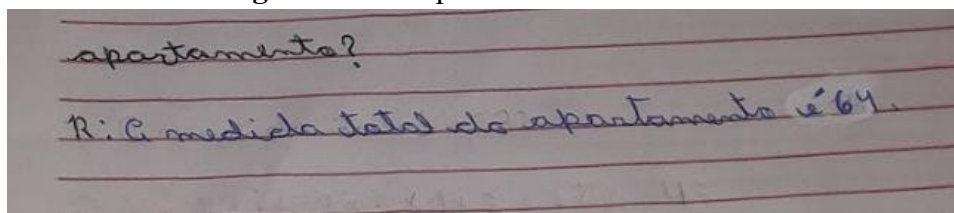 apartamento?
R: A medida total do apartamento é 64.